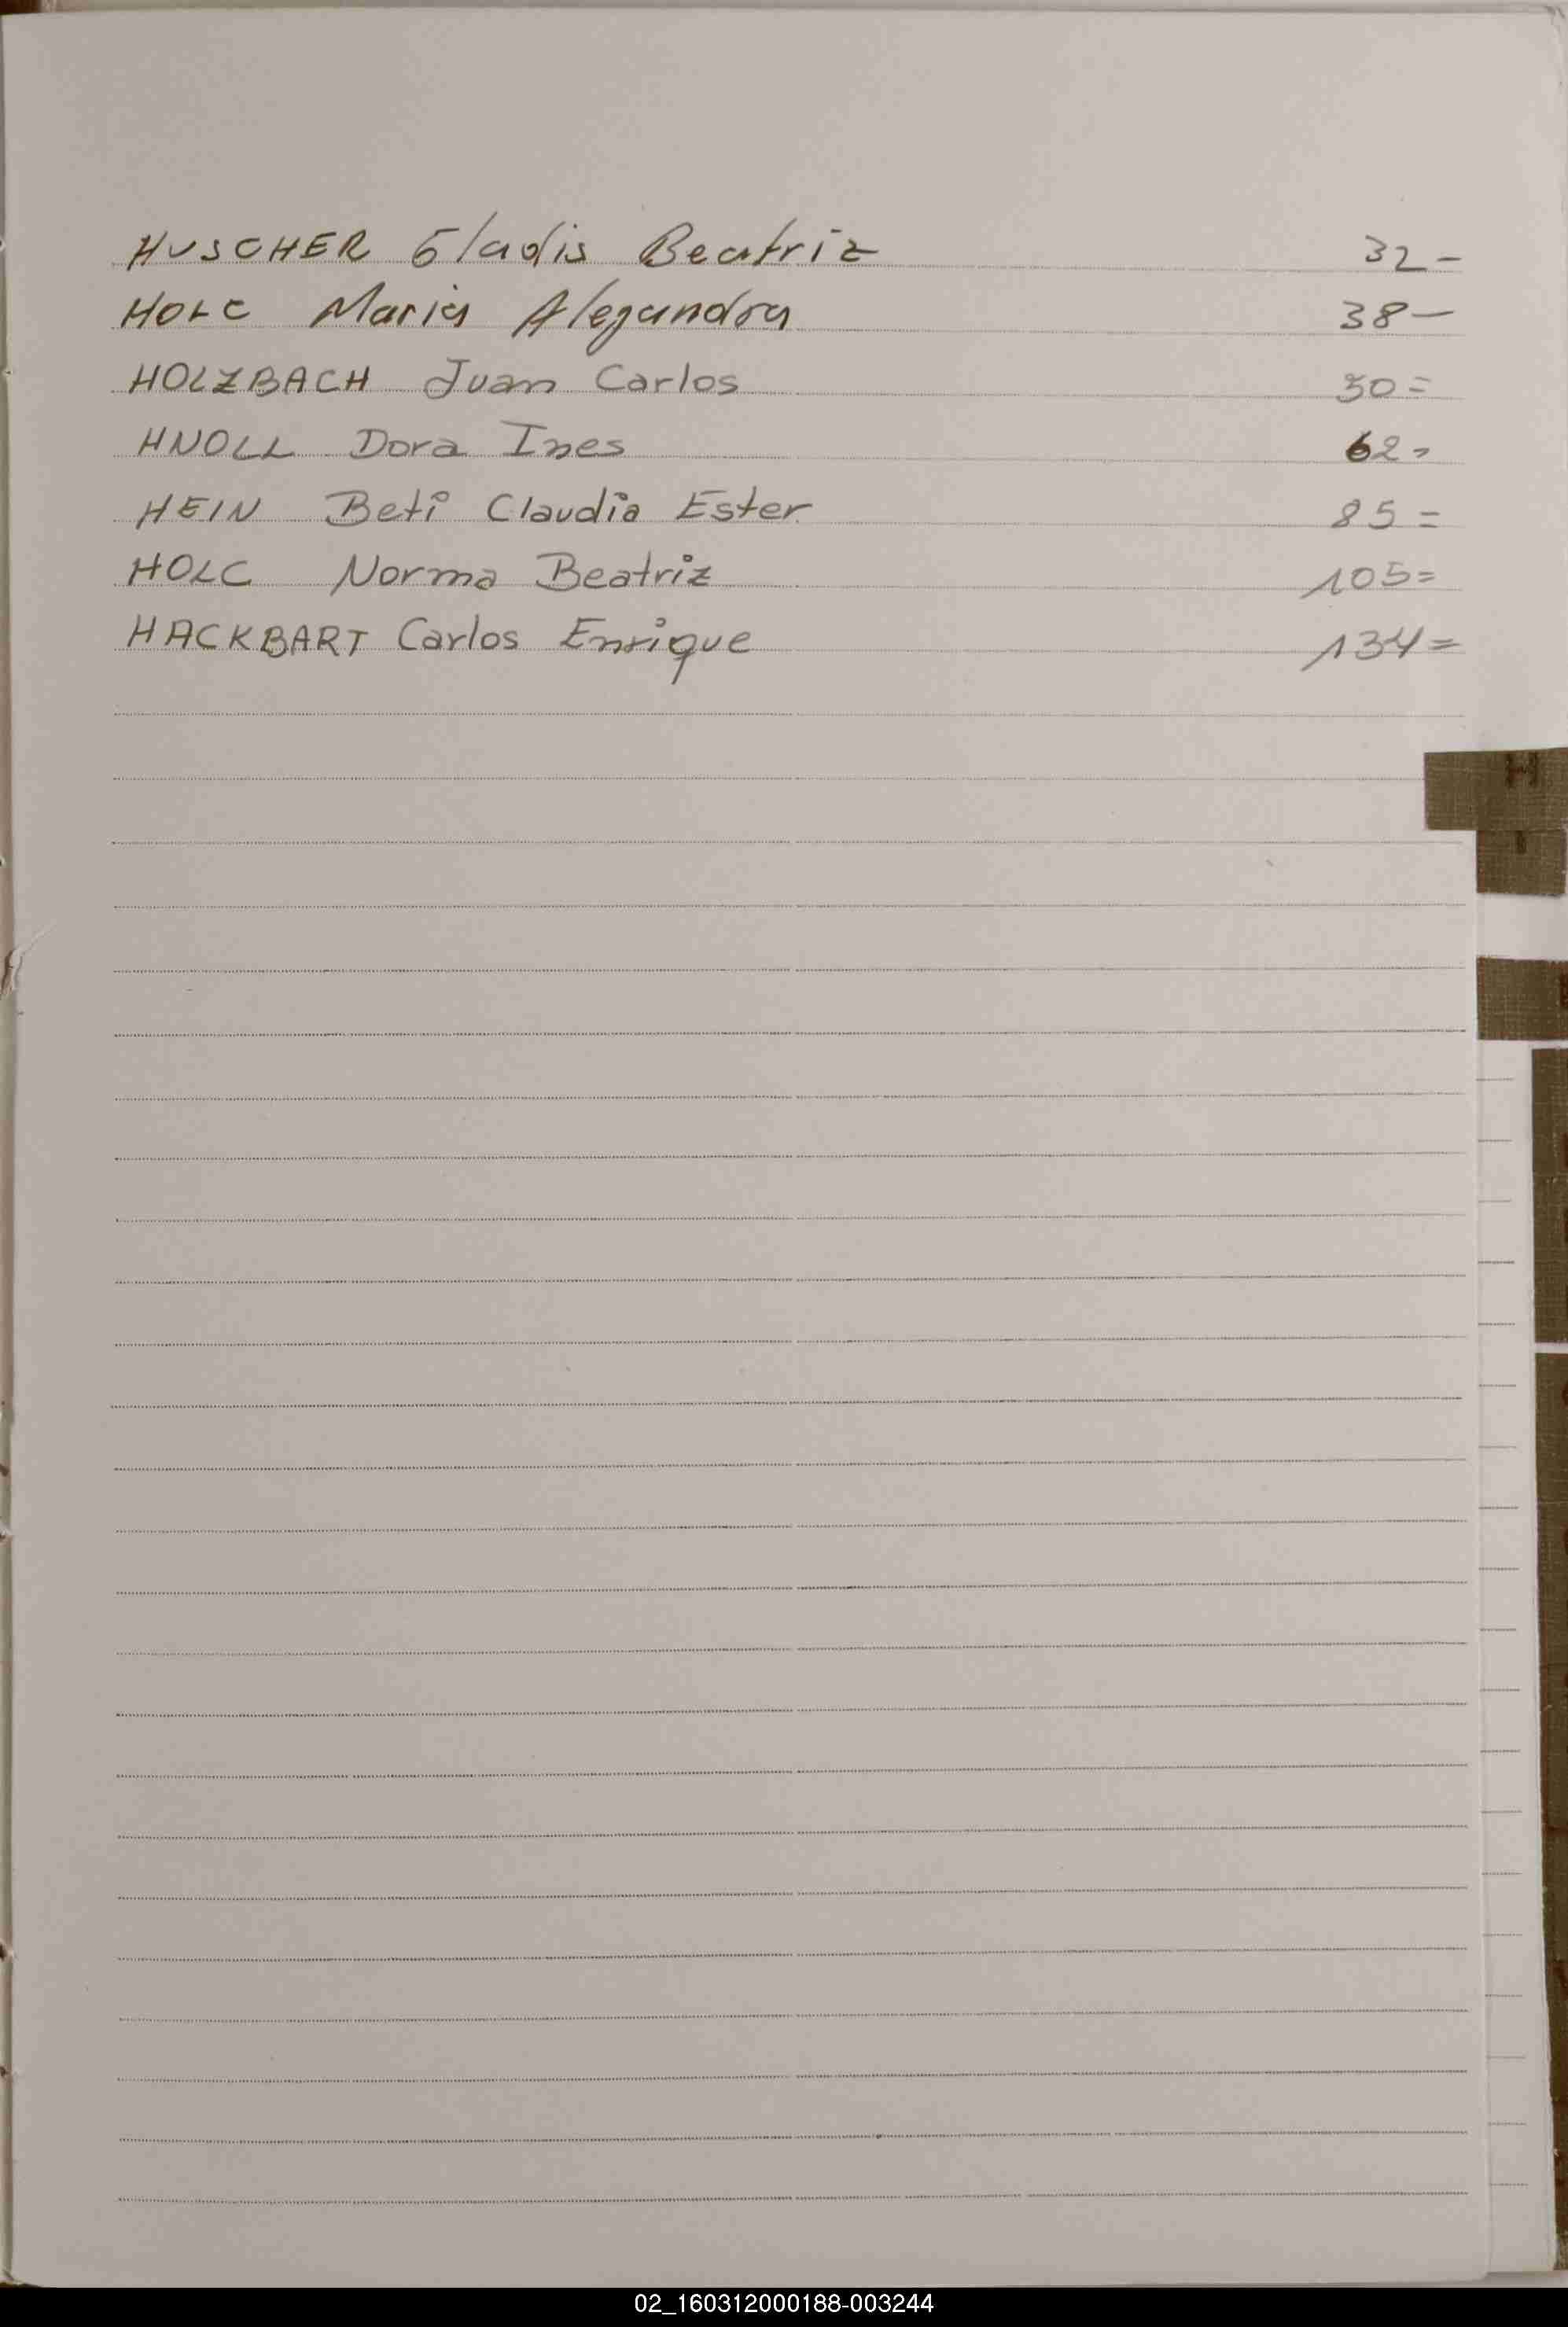 HUSCHER Gladis Beatriz 32-
HOLC Maria Alejandra 38-
HOLZBACH Juan Carlos 50=
HNOLL Dora Ines 62-
HEIN Beti Claudia Ester 85=
HOLC Norma Beatriz 105=
HACKBART Carlos Enrique 134=
H
I
02_160312000188-003244